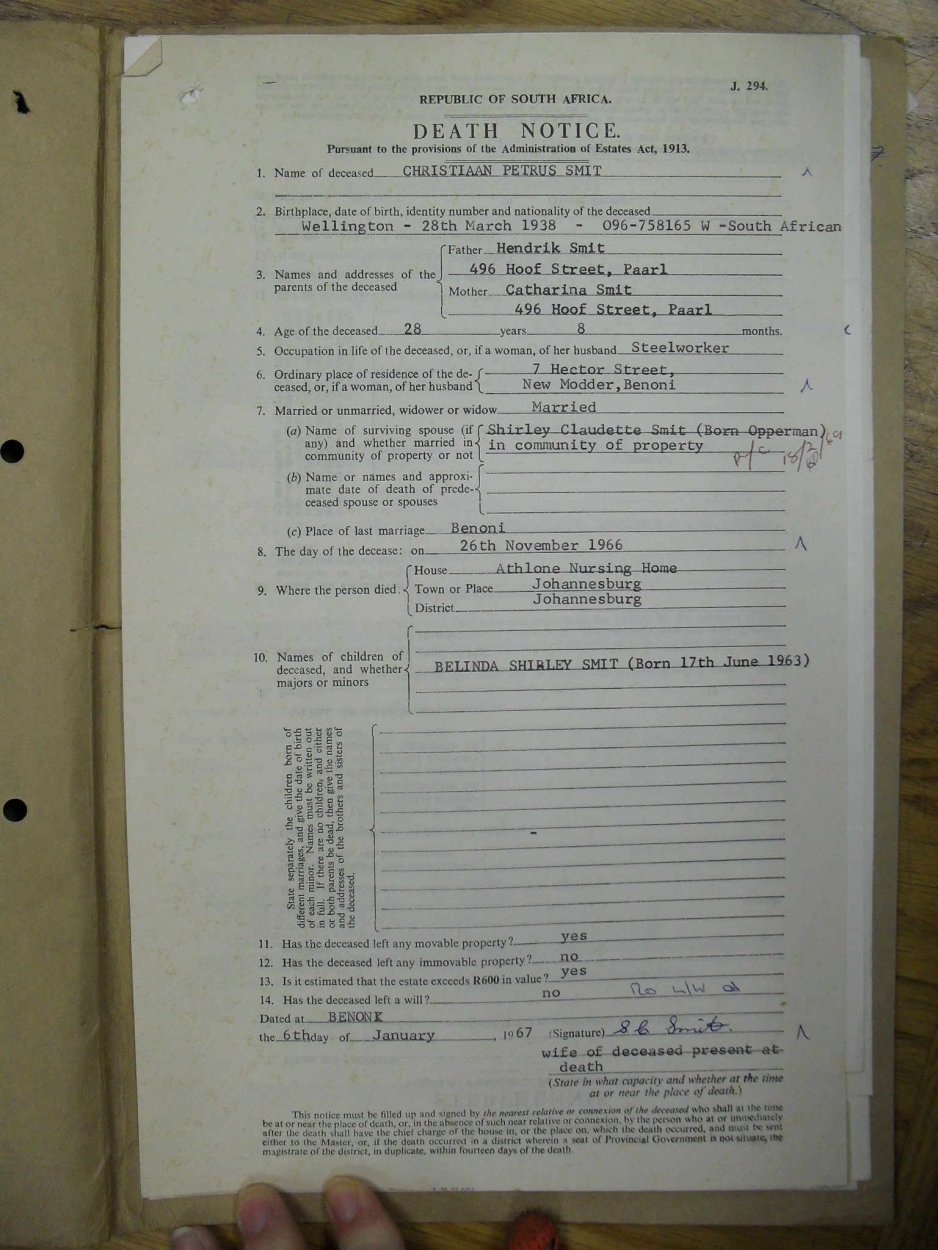 J. 294.
REPUBLIC OF SOUTH AFRICA.
DEATH NOTICE.
Pursuant to the provisions of the Administration of Estates Act, 1913.
1. Name of deceased CHRISTIAAN PETRUS SMIT
2. Birthplace, date of birth, identity number and nationality of the deceased
Wellington - 28th March 1938 - 096-758165 W -South African
3. Names and addresses of the parents of the deceased
Father Hendrik Smit
496 Hoof Street, Paarl
Mother Catharina Smit
496 Hoof Street, Paarl
4. Age of the deceased 28 years 8 months.
5. Occupation in life of the deceased, or, if a woman, of her husband Steelworker
6. Ordinary place of residence of the de-
ceased, or, if a woman, of her husband
7 Hector Street,
New Modder, Benoni
7. Married or unmarried, widower or widow Married
(a) Name of surviving spouse (if
any) and whether married in
community of property or not
Shirley Claudette Smit (Born Opperman)
in community of property
18/2/69
(b) Name or names and approxi-
mate date of death of prede-
ceased spouse or spouses
(c) Place of last marriage Benoni
8. The day of the decease: on 26th November 1966
9. Where the person died
House Athlone Nursing Home
Town or Place Johannesburg
District Johannesburg
10. Names of children of
deceased, and whether
majors or minors
BELINDA SHIRLEY SMIT (Born 17th June 1963)
State separately the children born of
different marriages, and give the date of birth
of each minor. Names must be written out
in full. If there are no children, and either
or both parents be dead, then give the names
and addresses of the brothers and sisters of
the deceased.
11. Has the deceased left any movable property? yes
12. Has the deceased left any immovable property? no
13. Is it estimated that the estate exceeds R600 in value? yes
14. Has the deceased left a will? no
Dated at BENONI
the 6th day of January, 1967 (Signature) S C Smit.
wife of deceased present at
death
(State in what capacity and whether at the time
at or near the place of death.)
This notice must be filled up and signed by the nearest relative or connexion of the deceased who shall at the time
be at or near the place of death, or, in the absence of such near relative or connexion, by the person who at or immediately
after the death shall have the chief charge of the house in, or the place on, which the death occurred, and must be sent
either to the Master, or, if the death occurred in a district wherein a seat of Provincial Government is not situate, the
magistrate of the district, in duplicate, within fourteen days of the death.